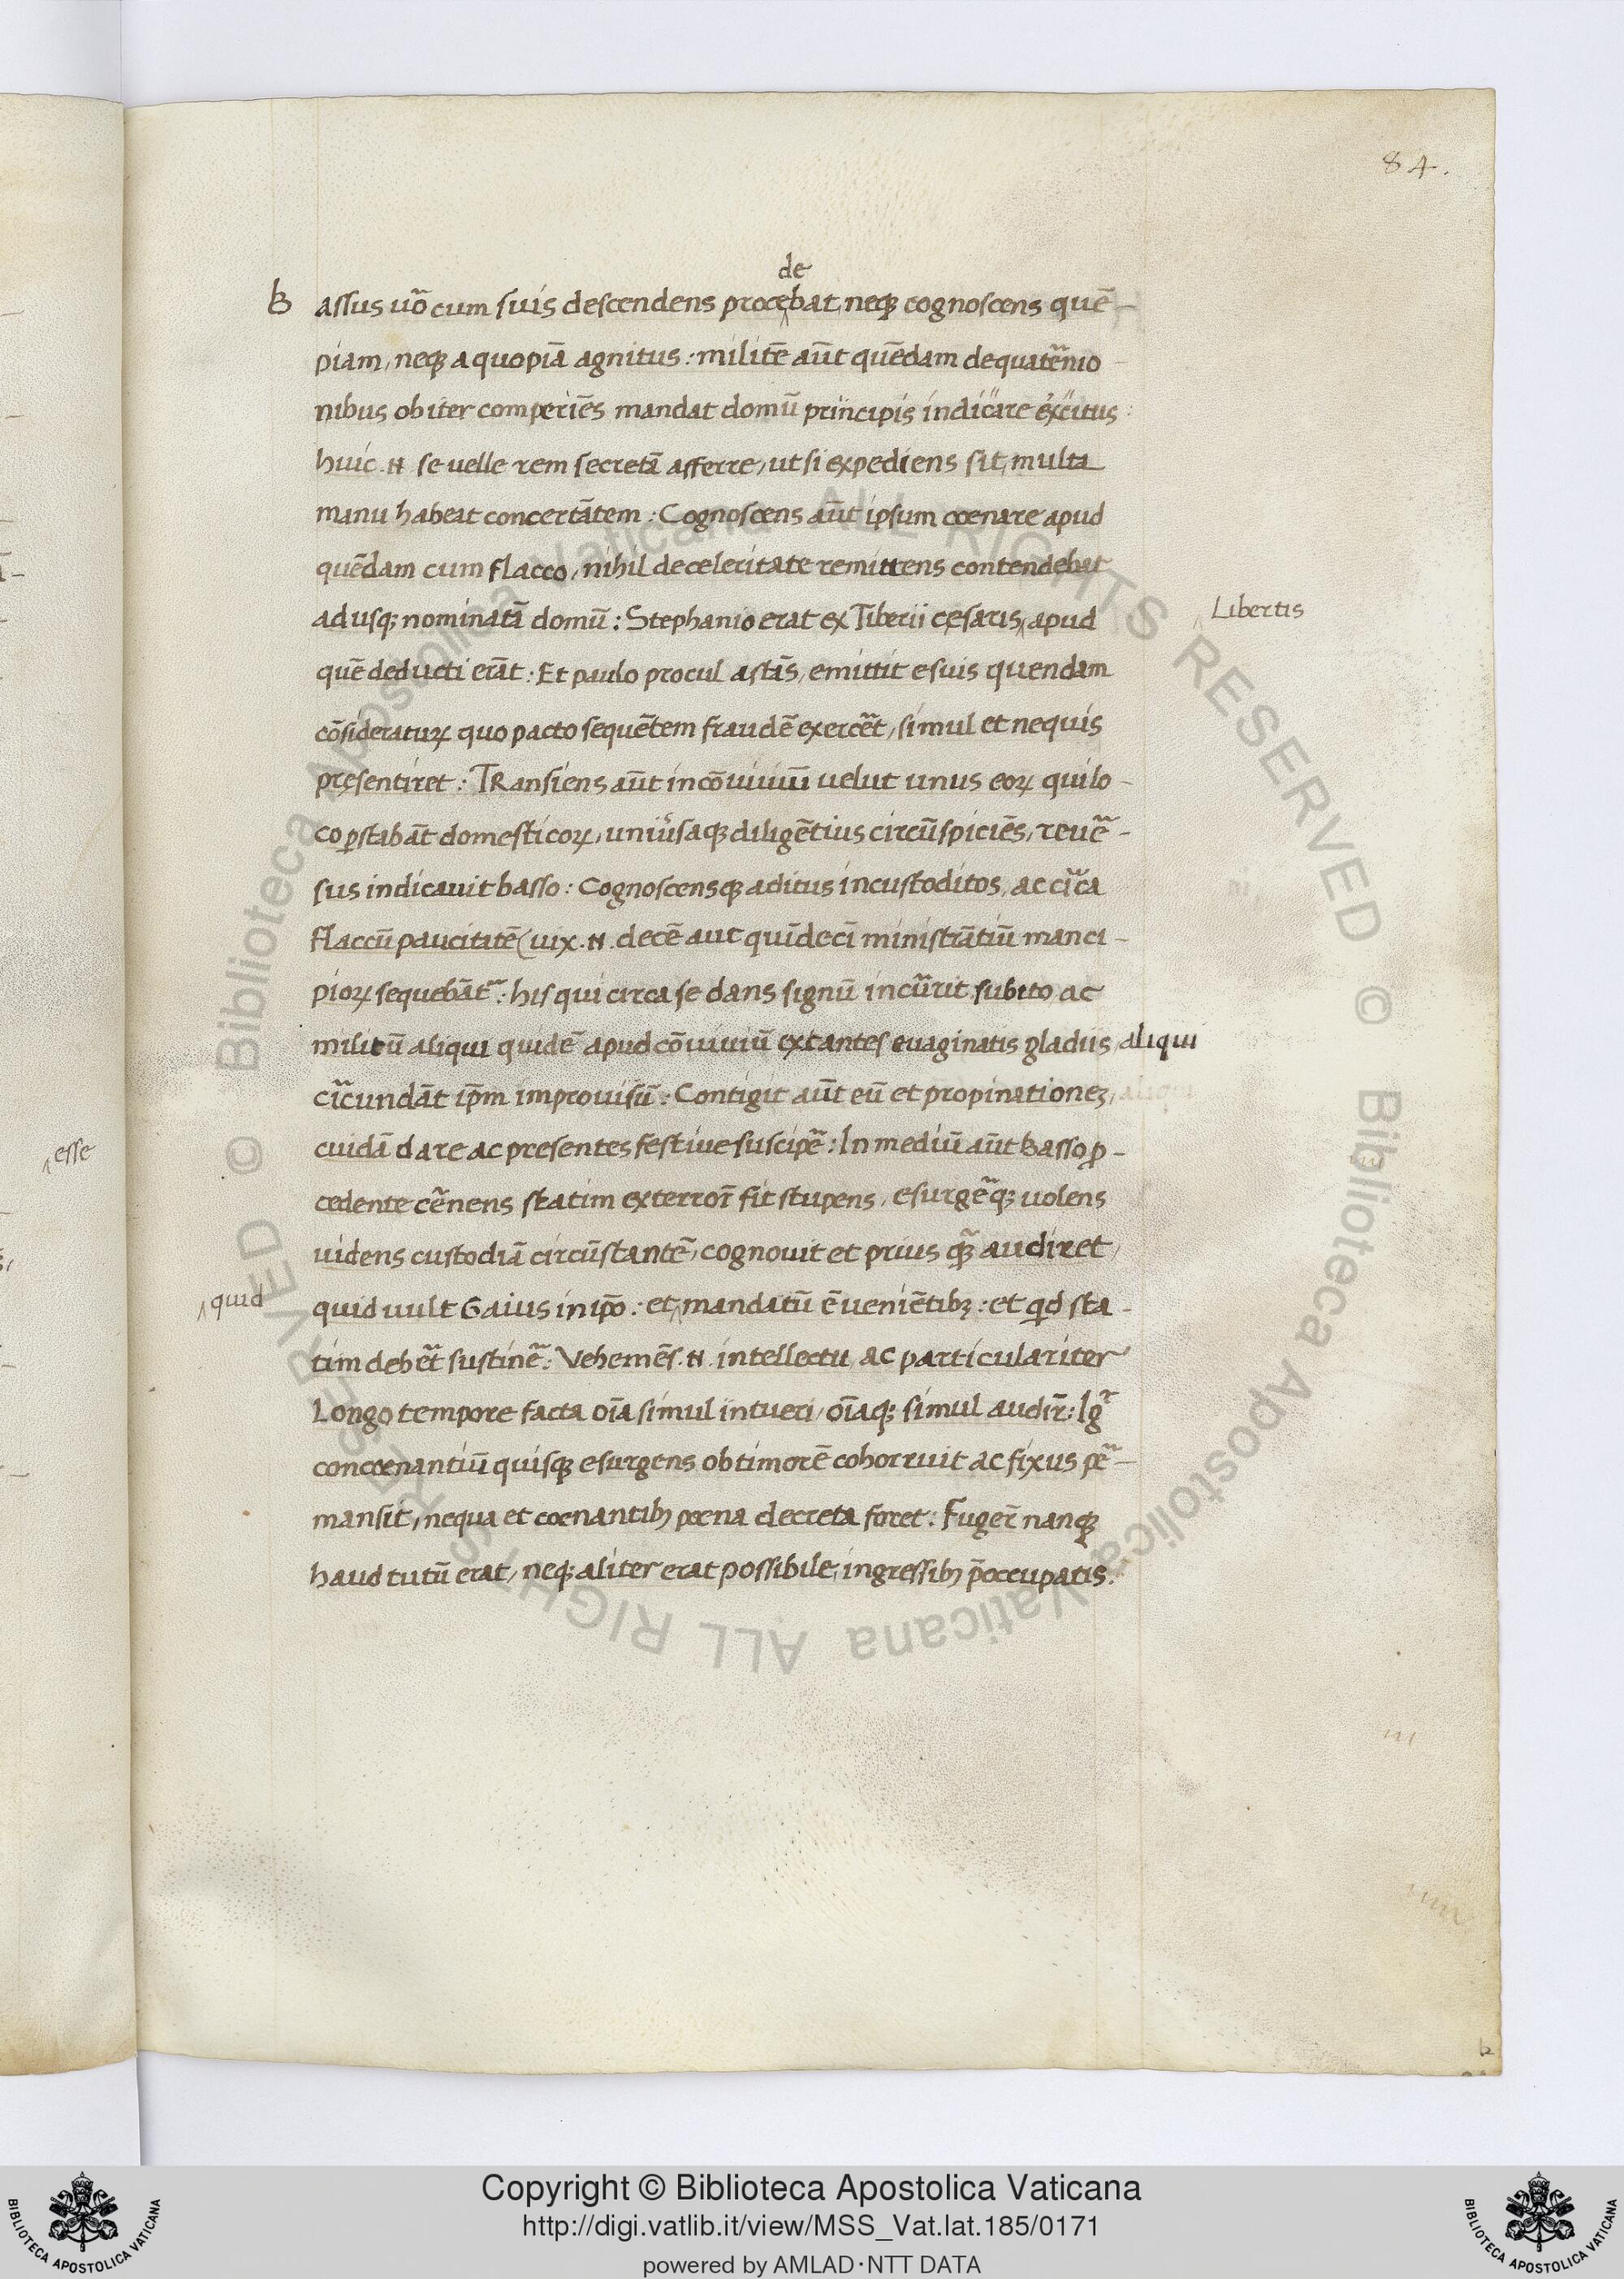 84.
de
Bassus uõ cum suis descendens procebat, neq; cognoscens quē-
piam, neq; a quopiā agnitus: militē aūt quēdam de quatẽnio
nibus obiter comperiēs mandat domū principis indicare exc̓itus:
huic .N. se uelle rem secretā afferre, ut si expediens sit, multa
manu habeat concertātem: Cognoscens aūt ipsum coenare apud
quēdam cum flacco, nihil de celeritate remittens contendebat
ad usq; nominatā domū: Stephanio erat ex Tiberii cęsaris, apud
Libertis
quē deducti erāt: Et paulo procul astās, emittit e suis quendam
cōsideraturꝝ quo pacto sequētem fraudē exercẽt, simul et nequis
pręsentiret: TRansiens aūt in cōuiuiū uelut unus eoꝝ qui lo-
co ꝑstabāt domesticoꝝ, uniũsaq; diligētius circūspiciēs, reuẽ-
sus indicauit basso: Cognoscensq; aditus incustoditos, ac cĩca
flaccū paucitatē (uix .N. decē aut quīdeci ministrātiū manci-
pioꝝ sequebāt᷑: his qui circa se dans signū incũrit subito, ac
militū aliqui quidē apud cōuiuiū extantes euaginatis gladiis, aliqui
cĩcundāt ip̄m improuisū: Contigit aūt eū et propinationeʒ,
cuidā dare ac presentes festiue suscipẽ: In mediū aūt Basso ꝓ-
esse
cedente cẽnens statim exterror̄ fit stupens, esurgẽq; uolens
uidens custodiā circūstantē, cognouit et prius qꝫ̃ audiret,
quid uult Gaius in ip̄o: et mandatū ē ueniētibꝫ: et qd̄ sta-
quid
tim debẽt sustinẽ: Vehemēs .N. intellectu, ac particulariter
Longo tempore facta oīa simul intueri, oīaq; simul audir̄: Igr̃
concoenantiū quisq; esurgens ob timorē cohorruit ac fixus pẽ-
mansit, nequa et coenantibꝫ poena decreta foret: Fuger̄ nanq;
haud tutū erat, neq; aliter erat possibile, ingressibꝫ p̄occupatis.
Copyright © Biblioteca Apostolica Vaticana
http://digi.vatlib.it/view/MSS_Vat.lat.185/0171
powered by AMLAD·NTT DATA